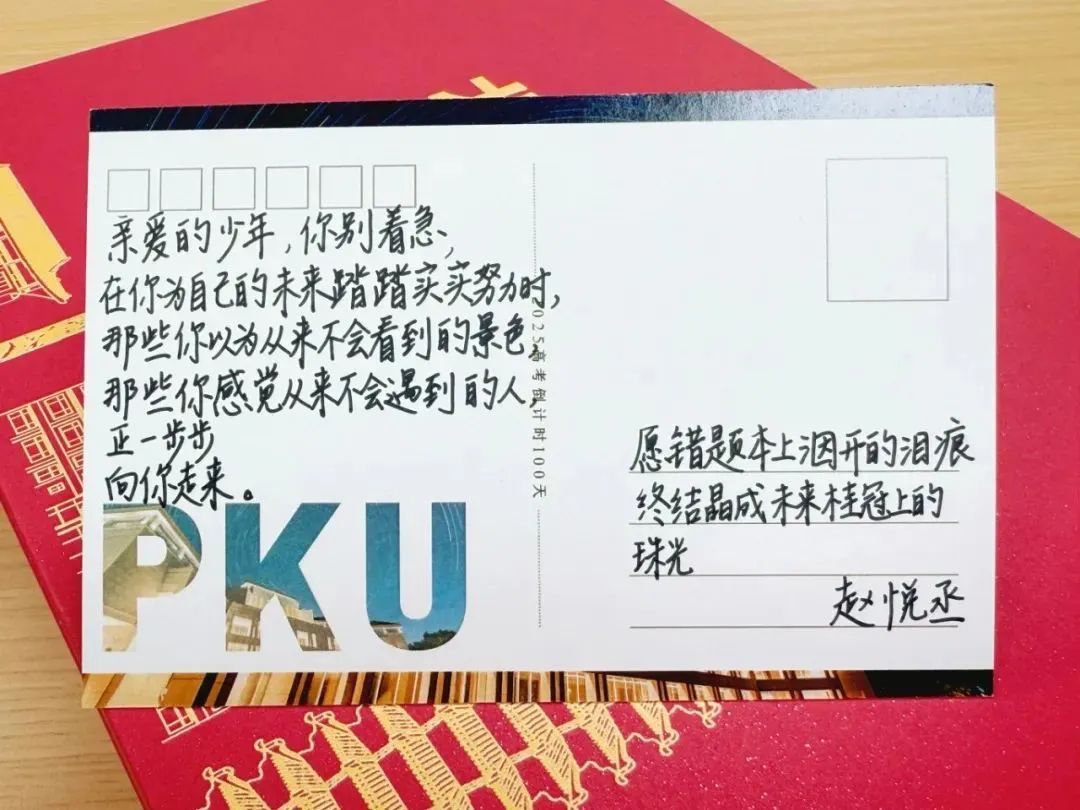 亲爱的少年，你别着急，
在你为自己的未来踏踏实实努力时，
那些你以为从来不会看到的景色，
那些你感觉从来不会遇到的人，
正一步步
向你走来。
PKU
2025高考倒计时100天
愿错题本上洇开的泪痕
终结晶成未来桂冠上的
珠光
赵悦丞